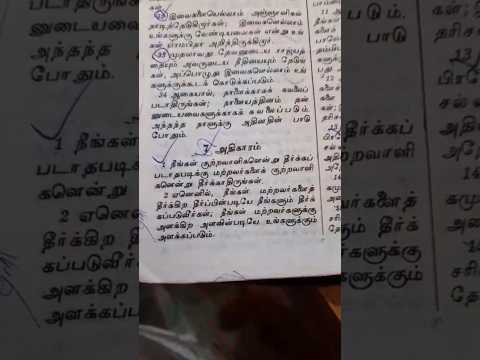 கள்.
32 இவைகளையெல்லாம் அஞ்ஞானிகள்
நாடித்தேடுகிறார்கள்; இவைகளெல்லாம்
உங்களுக்கு வேண்டியவைகள் என்று உங்
கள் பரமபிதா அறிந்திருக்கிறார்.
33 முதலாவது தேவனுடைய ராஜ்யத்
தையும் அவருடைய நீதியையும் தேடுங்
கள், அப்பொழுது இவைகளெல்லாம் உங்
களுக்குக்கூடக் கொடுக்கப்படும்.
34 ஆகையால், நாளைக்காகக் கவலைப்
படாதிருங்கள்; நாளையத்தினம் தன்
னுடையவைகளுக்காகக் கவலைப்படும்.
அந்தந்த நாளுக்கு அதினதின் பாடு
போதும்.
7 அதிகாரம்
1 நீங்கள் குற்றவாளிகளென்று தீர்க்கப்
படாதபடிக்கு மற்றவர்களைக் குற்றவாளி
களென்று தீர்க்காதிருங்கள்.
2 ஏனெனில், நீங்கள் மற்றவர்களைத்
தீர்க்கிற தீர்ப்பின்படியே நீங்களும் தீர்க்
கப்படுவீர்கள்; நீங்கள் மற்றவர்களுக்கு
அளக்கிற அளவின்படியே உங்களுக்கும்
அளக்கப்படும்.
னுடைய
அந்தந்த
போதும்.
1 நீங்கள்
படாதபடிக்கு
களென்று
2 ஏனெனி
தீர்க்கிற
கப்படுவீர்
அளக்கிற
அளக்கப்ப